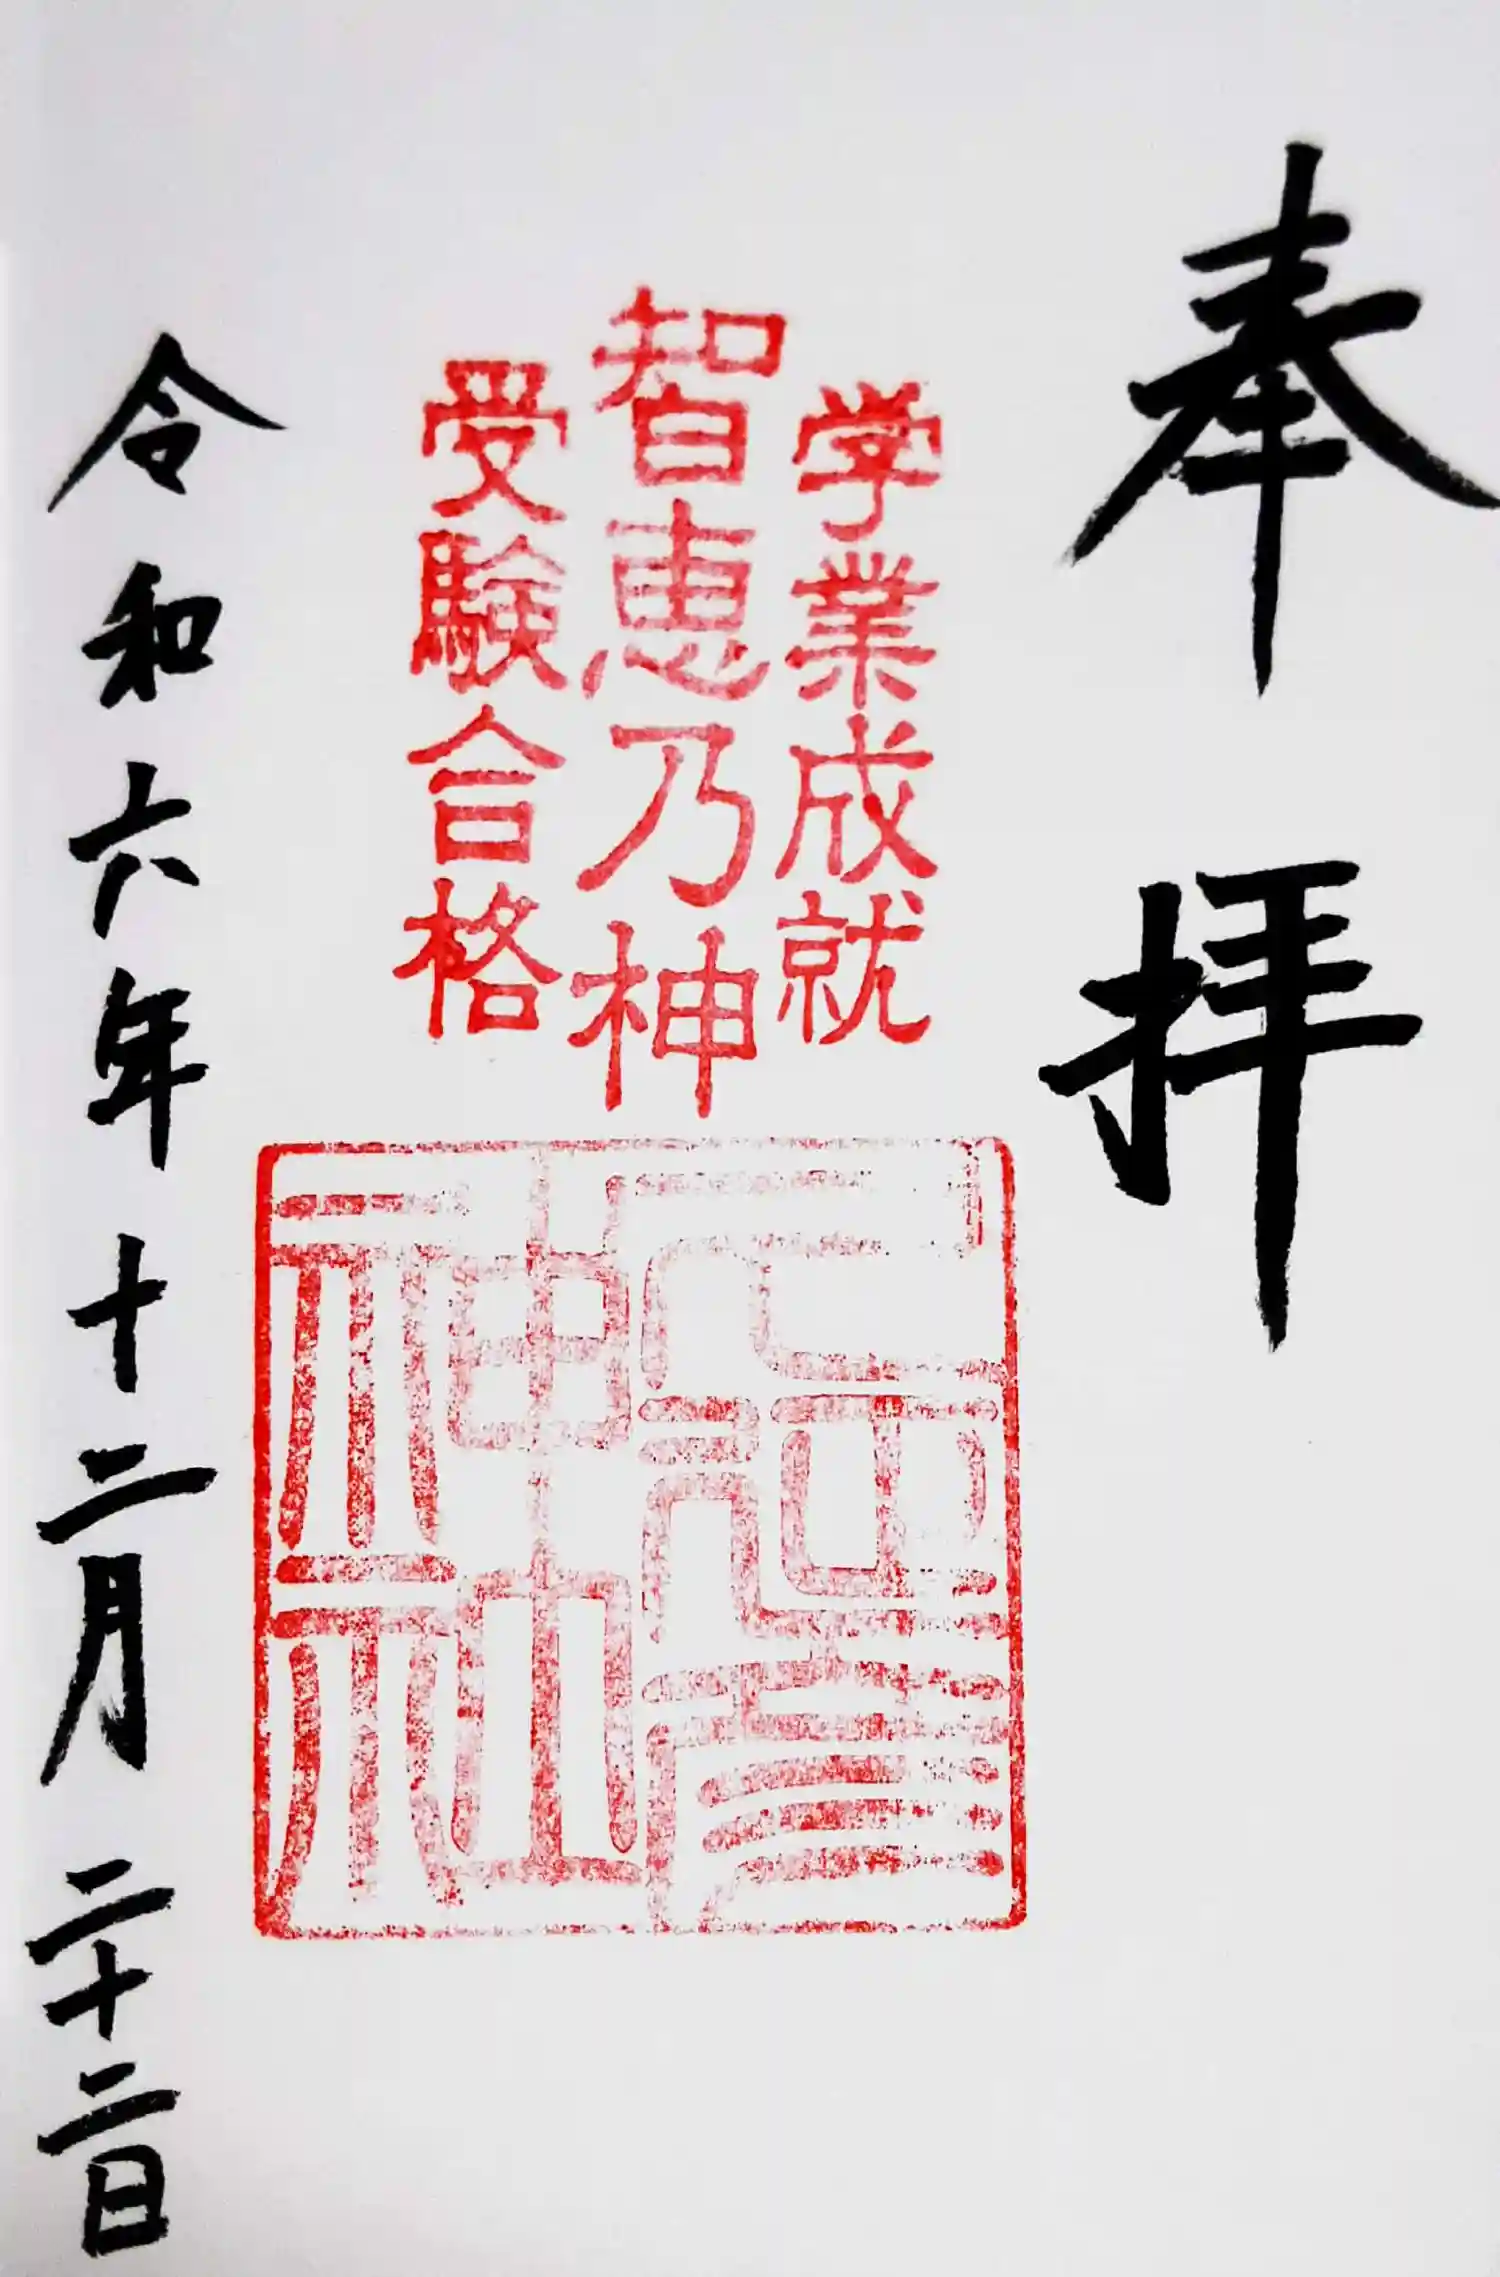 奉拝
学業成就
智恵乃神
受験合格
令和六年十二月二十二日